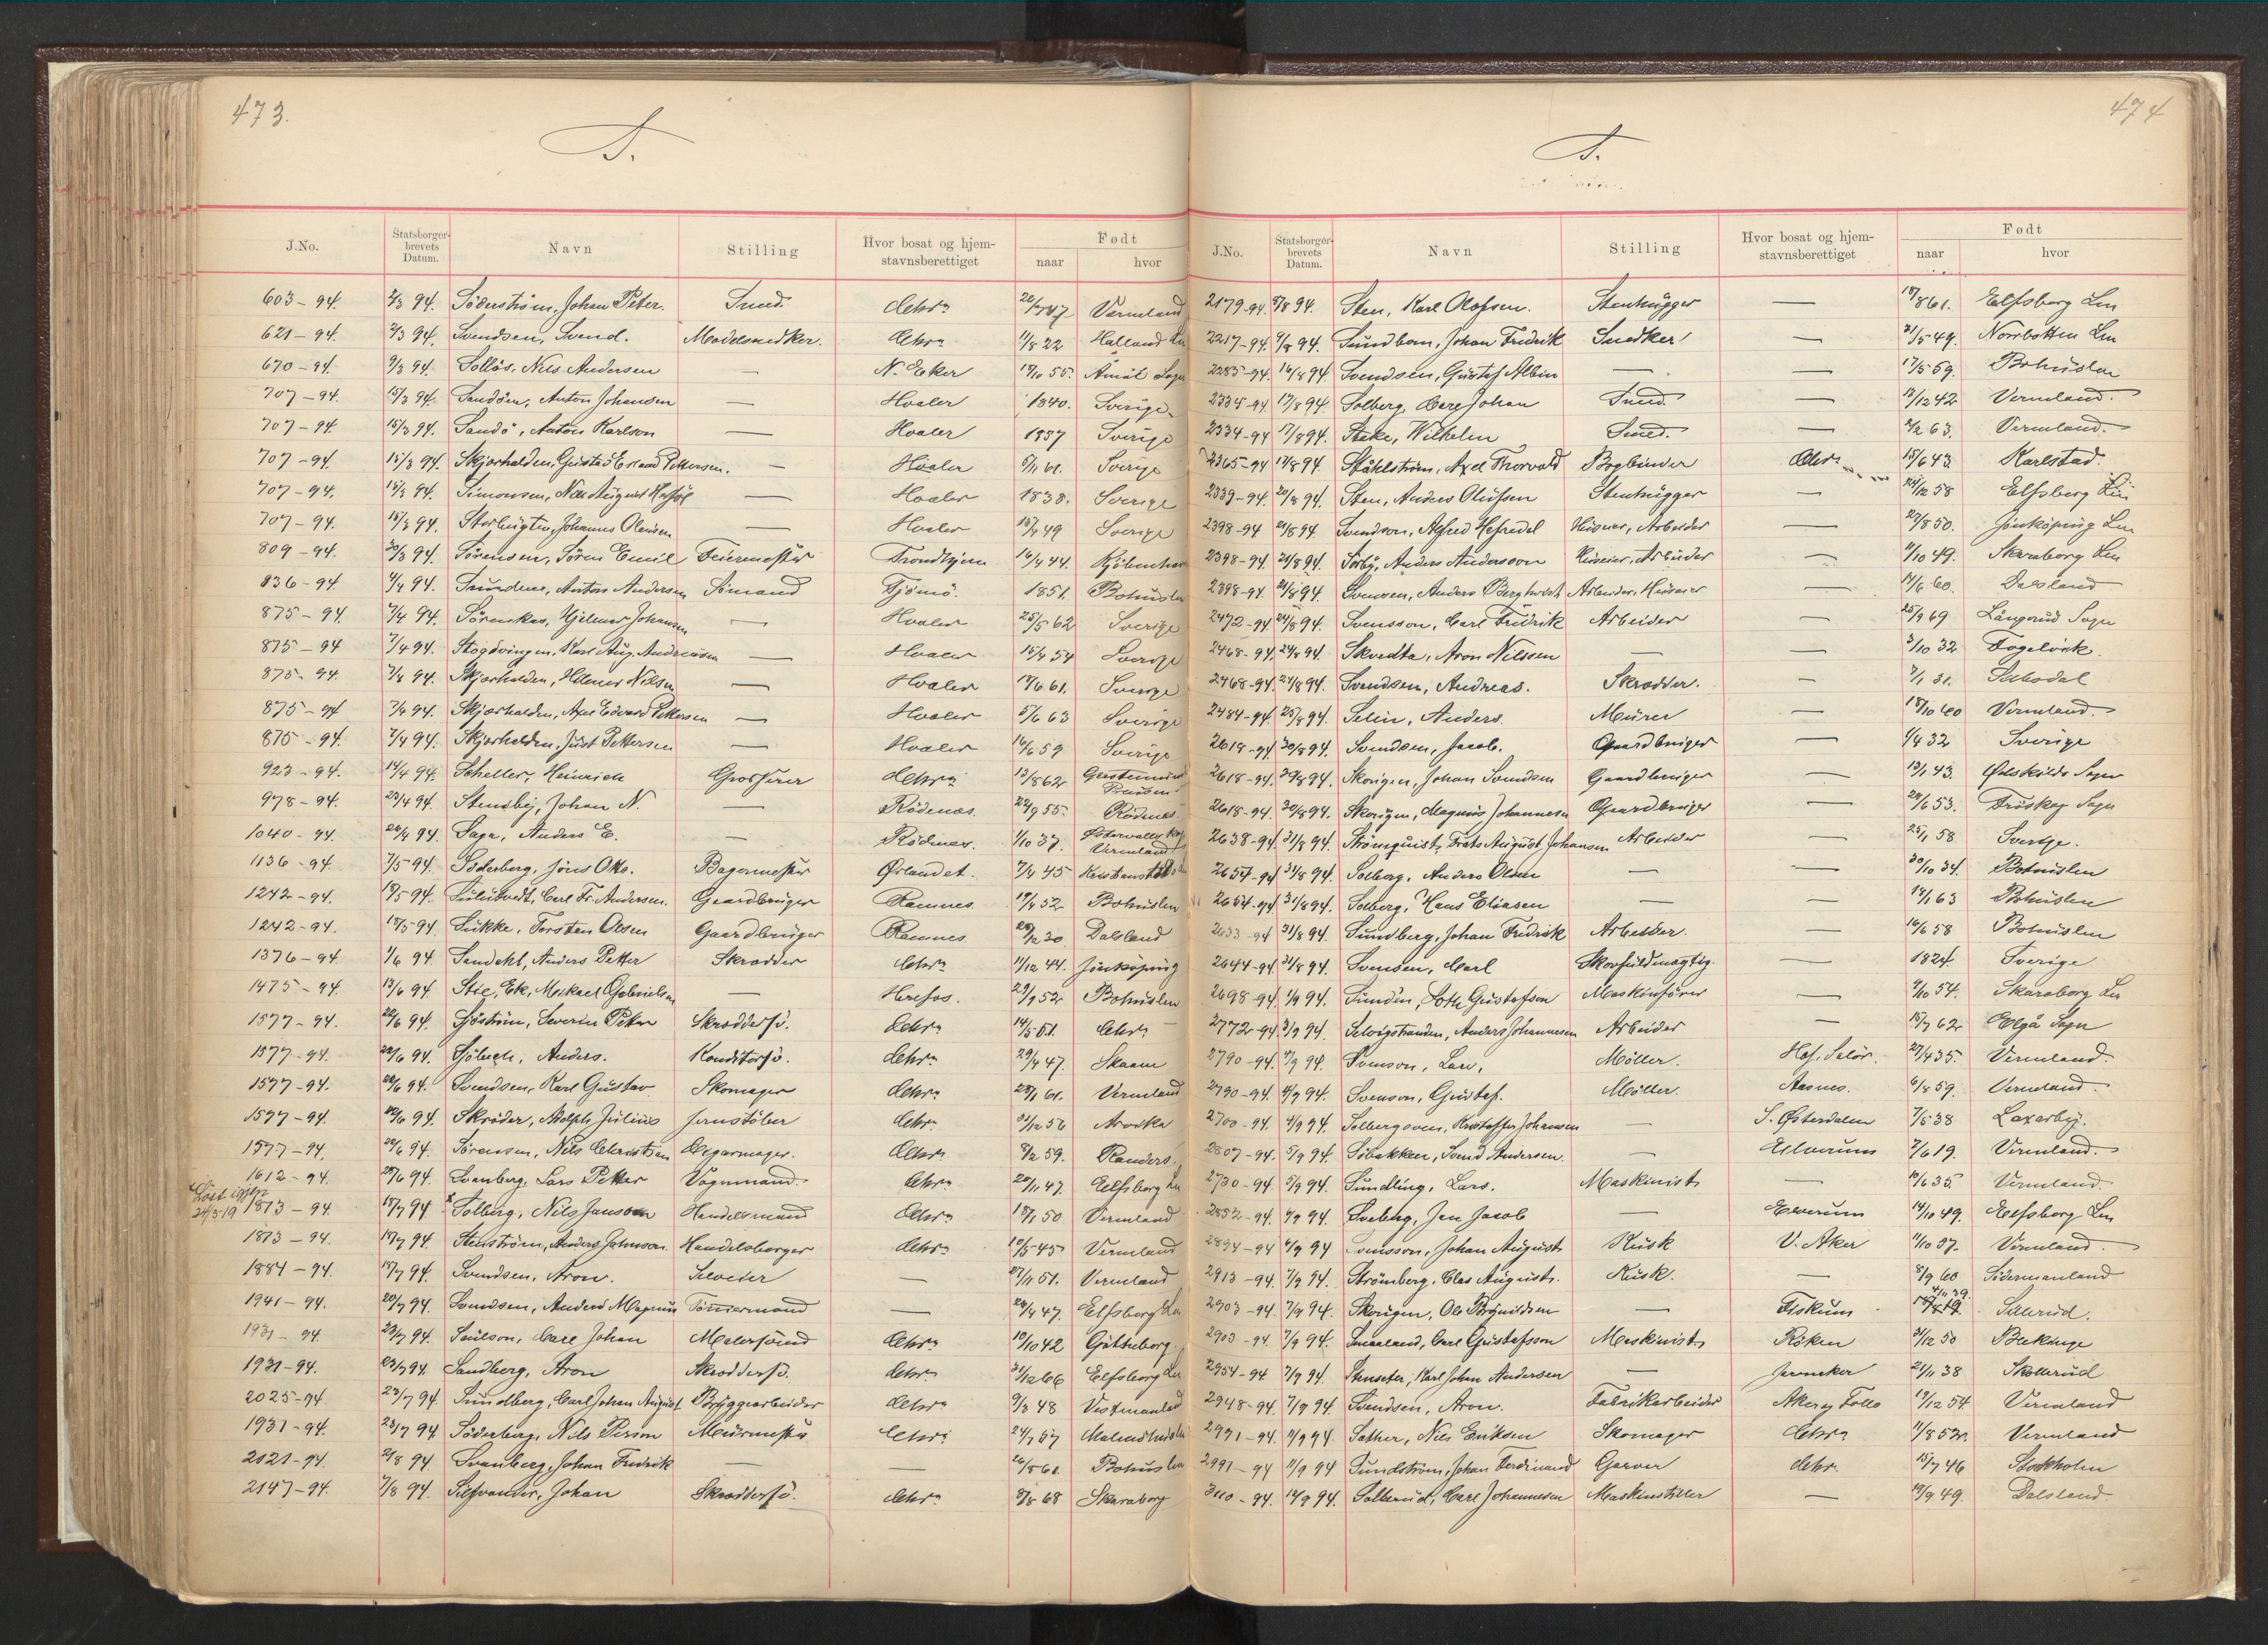 473.
S.
J.No. Statsborgerbrevets Datum. Navn Stilling Hvor bosat og hjemstavnsberettiget Født naar hvor
603-94. 2/3 94. Söderström, Johan Peter. Smed. Chra Vermland
621-94. 2/3 94. Svendsen, Svend. Modelsnedker. Chra 11/8 22 Halland Len
670-94. 9/3 94. Solläs, Nils Andersen — N. Eker 17/10 55. Åmål Sogn
707-94. 15/3 94. Sandöen, Anton Johansen — Hvaler 1840. Sverige
707-94. 15/3 94. Sandö, Anton Karlson — Hvaler 1857 Sverige
707-94. 15/3 94. Skjærhalden, Gustav Erland Pettersen. — Hvaler 5/11 61. Sverige
707-94. 15/3 94. Simonsen, Nils August — Hvaler 1838. Sverige
707-94. 15/3 94. Johannes Olausen — Hvaler 49 Sverige
809-94. 30/3 94. Sörensen, Sören Emil Feiermester Trondhjem 16/4 44. Kjöbenhavn
836-94. 4/4 94. Anton Andersen Sömand Tjömö. 1851. Bohuslen
875-94. 7/4 94. Hjelmer Johansen — Hvaler 25/5 62 Sverige
875-94 7/4 94. Karl Aug. Andreasen — Hvaler 15/4 54 Sverige
875-94. 7/4 94. Skjærhalden, Hilmer Nilsen — Hvaler 17/6 61. Sverige
875-94 7/4 94. Skjærhalden, Axel Edvard Pettersen — Hvaler 5/6 63 Sverige
875-94. 7/4 94. Skjærhalden, Just Pettersen — Hvaler 14/6 59 Sverige
923-94. 14/4 94. Scheller, Heinrich Grosserer Chra 13/8 62 Preussen
978-94. 23/4 94. Stensby, Johan N. — Rödenæs. 22/9 55. Rödenæs
1040-94. 24/4 94. Saga, Anders E. — Rödenæs. 1/10 37. Östervallskog Vermland
1136-94. 7/5 94. Söderberg, Jöns Otto. Bagermester Ørlandet. 7/4 45 Kristianstad
1242-94. 18/5 94. Carl Fr. Andersen. Gaardbruger Ramnes 17/4 32 Bohuslen
1242-94. 18/5 94. Torsten Olsen Gaardbruger Ramnes 20/12 30 Dalsland
1376-94. 1/6 94. Sandahl, Anders Petter Skrædder Chra 11/12 44. Jönköping
1475-94. 13/6 94. Stie, Ek, Mickael Gabrielsen — Herefos. 29/9 52 Bohuslen
1577-94. 22/6 94. Sjöström, Severin Peter Skræddersv. Chra 14/5 61 Chra
1577-94. 22/6 94. Anders. Konditorsv. Chra 29/4 47. Skaane
1577-94. 22/6 94. Svendsen, Karl Gustav Skomager Chra 28/1 61. Vermland
1577-94. 22/6 94. Skröder, Adolph Julius Jernstöber Chra 31/12 56 Arvika
1577-94. 22/6 94. Sörensen, Nils Christian Cigarmager. Chra 8/2 59. Randers.
1612-94. 28/6 94. Svanberg, Lars Petter Vognmand. Chra 20/11 47. Elfsborg Len
Löst igjen 24/5 19
1813-94. 18/7 94. x Solberg, Nils Jansson Handelsmand Chra 18/1 50 Vermland
1813-94. 18/7 94. Stenström, Anders Johnson. Handelsborger Chra 19/5 45 Vermland
1884-94. 18/7 94. Svendsen, Aron. — 27/11 51. Vermland
1941-94. 20/7 94. Svendsen, Anders Magnus Tömmermand — 26/4 47. Elfsborg Len
1931-94. 23/7 94. Saulson, Carl Johan Malersvend Chra 10/10 42 Götteborg.
1931-94. 23/7 94. Sandberg, Aron Skræddersv. Chra 31/12 66 Elfsborg Len
2025-94. 23/7 94. Sundberg, Carl Johan August Bryggearbeider Chra 9/3 48 Vestmanland
1931-94. 23/7 94. Söderberg, Nils Person Murmester Chra 24/7 57 Malmöhus Len
2021-94. 2/8 94. Svanberg, Johan Fredrik — — 26/5 61. Bohuslen
2147-94. 7/8 94. Silfvander, Johan Skræddersv. Chra 8/8 68 Skaraborg
474
S.
J.No. Statsborgerbrevets Datum. Navn Stilling Hvor bosat og hjemstavnsberettiget Født naar hvor
2179-94. 8/8 94. Sten, Karl Olofsen. Stenhugger — 18/8 61. Elfsborg Len
2217-94. 9/8 94. Sundbom, Johan Fredrik Snedker — 31/5 49. Norrbotten Len
2285-94. 16/8 94. Svendsen, Gustaf Albin — — 17/5 59. Bohuslen
2335-94. 17/8 94. Solberg, Carl Johan Smed. — 13/12 42 Vermland.
2334-94. 17/8 94. Stake, Wilhelm Smed. — 2/2 63. Vermland.
2365-94 17/8 94. Ståhlström, Axel Thorvald Bogbinder Chra 15/6 43 Karlstad.
2339-94. 20/8 94. Sten, Anders Olufsen Stenhugger — 24/12 58 Elfsborg Len
2398-94 21/8 94. Svendson, Alfred Husmer, Arbeider — 27/8 50. Jönköping Len
2398-94. 21/8 94. Sörby, Anders Andersson Arbeider — 11/10 49. Skaraborg Len
2398-94. 21/8 94. Svensen, Anders Berghvist Arbeider. — 14/6 60. Dalsland
2472-94 24/8 94. Svensson, Carl Fredrik Arbeider — 25/9 69 Långerud Sogn
2468-94. 24/8 94. Skvedta, Aron Nilssen — — 3/10 32. Fogelvik.
2468-94. 24/8 94. Svendsen, Andreas. Skrædder. — 7/1 31. Silbodal
2484-94. 25/8 94. Selin, Anders. Murer — 18/10 60 Vermland.
2618-94. 30/8 94. Svendsen, Jacob. Gaardbruger — 1/4 32 Sverige
2618-94. 30/8 94. Skorigen, Johan Svendsen Gaardbruger — 13/1 43. Sogn
2618-94. 30/8 94. Skorigen, Magnus Johannesen Gaardbruger — 24/6 53. Sogn
2638-94. 31/8 94. Strömquist, Frats August Johansen Arbeider — 25/1 58 Sverige.
2654-94 31/8 94. Solberg, Anders Olsen — — 30/10 34. Bohuslen
2654-94 31/8 94. Solberg, Hans Eliasen — — 18/1 63 Bohuslen
2633-94 31/8 94. Sundberg, Johan Fredrik Arbeider. — 16/6 58 Bohuslen
2644-94. 31/8 94. Svensen, Carl Skovfuldmægtig. — 1824. Sverige
2698-94. 1/9 94. Sundén, Loth Gustafson Maskinförer — 9/10 54. Skaraborg Len
2772-94. 3/9 94. Selvigstranden, Anders Johannesen Arbeider — 15/7 62 Elgå Sogn
2790-94. 4/9 94. Svenson, Lars. Möller. Hof. Solör. 27/4 35. Vermland.
2790-94. 4/9 94. Svenson, Gustaf. Möller. Aasnes. 6/8 59. Vermland.
2700-94. 4/9 94. Kristoffer Johansen — S. Østerdalen 7/5 38 Laxarby.
2807-94. 5/9 94. Svend Andersen. — Elverum 7/6 19. Vermland.
2730-94. 5/9 94. Sundling, Lars. Maskinist — 10/6 35. Vermland.
2852-94. 4/9 94. Sveberg, Jan Jacob — Elverum 14/10 49. Elfsborg Len
2894-94 4/9 94 Svensson, Johan August Kusk V. Aker 11/10 37. Vermland.
2913-94. 7/9 94. Strömberg, Clas August. Kusk. — 8/9 60 Södermanland
2903-94. 7/9 94. Skorigen, Ole — Fiskum Sillerud.
2903-94. 7/9 94. Smaaland, Carl Gustafsson Maskinist Röken 31/12 50 Blekinge
2954-94 7/9 94. Stenseter, Karl Johan Andersen — Jevnaker 21/11 38 Skillerud
2948-94. 7/9 94. Svendsen, Aron. Fabrikarbeider Aker, Follo 19/12 54 Vermland
2991-94. 11/9 94. Sather, Nils Eriksen Skomager Chra 11/8 52. Vermland
2991-94 11/9 94 Sundström, Johan Ferdinand Garver Chra. 15/7 46 Stockholm
3110-94. 14/9 94. Solberud, Carl Johannesen Maskinstiller — 19/9 49. Dalsland.